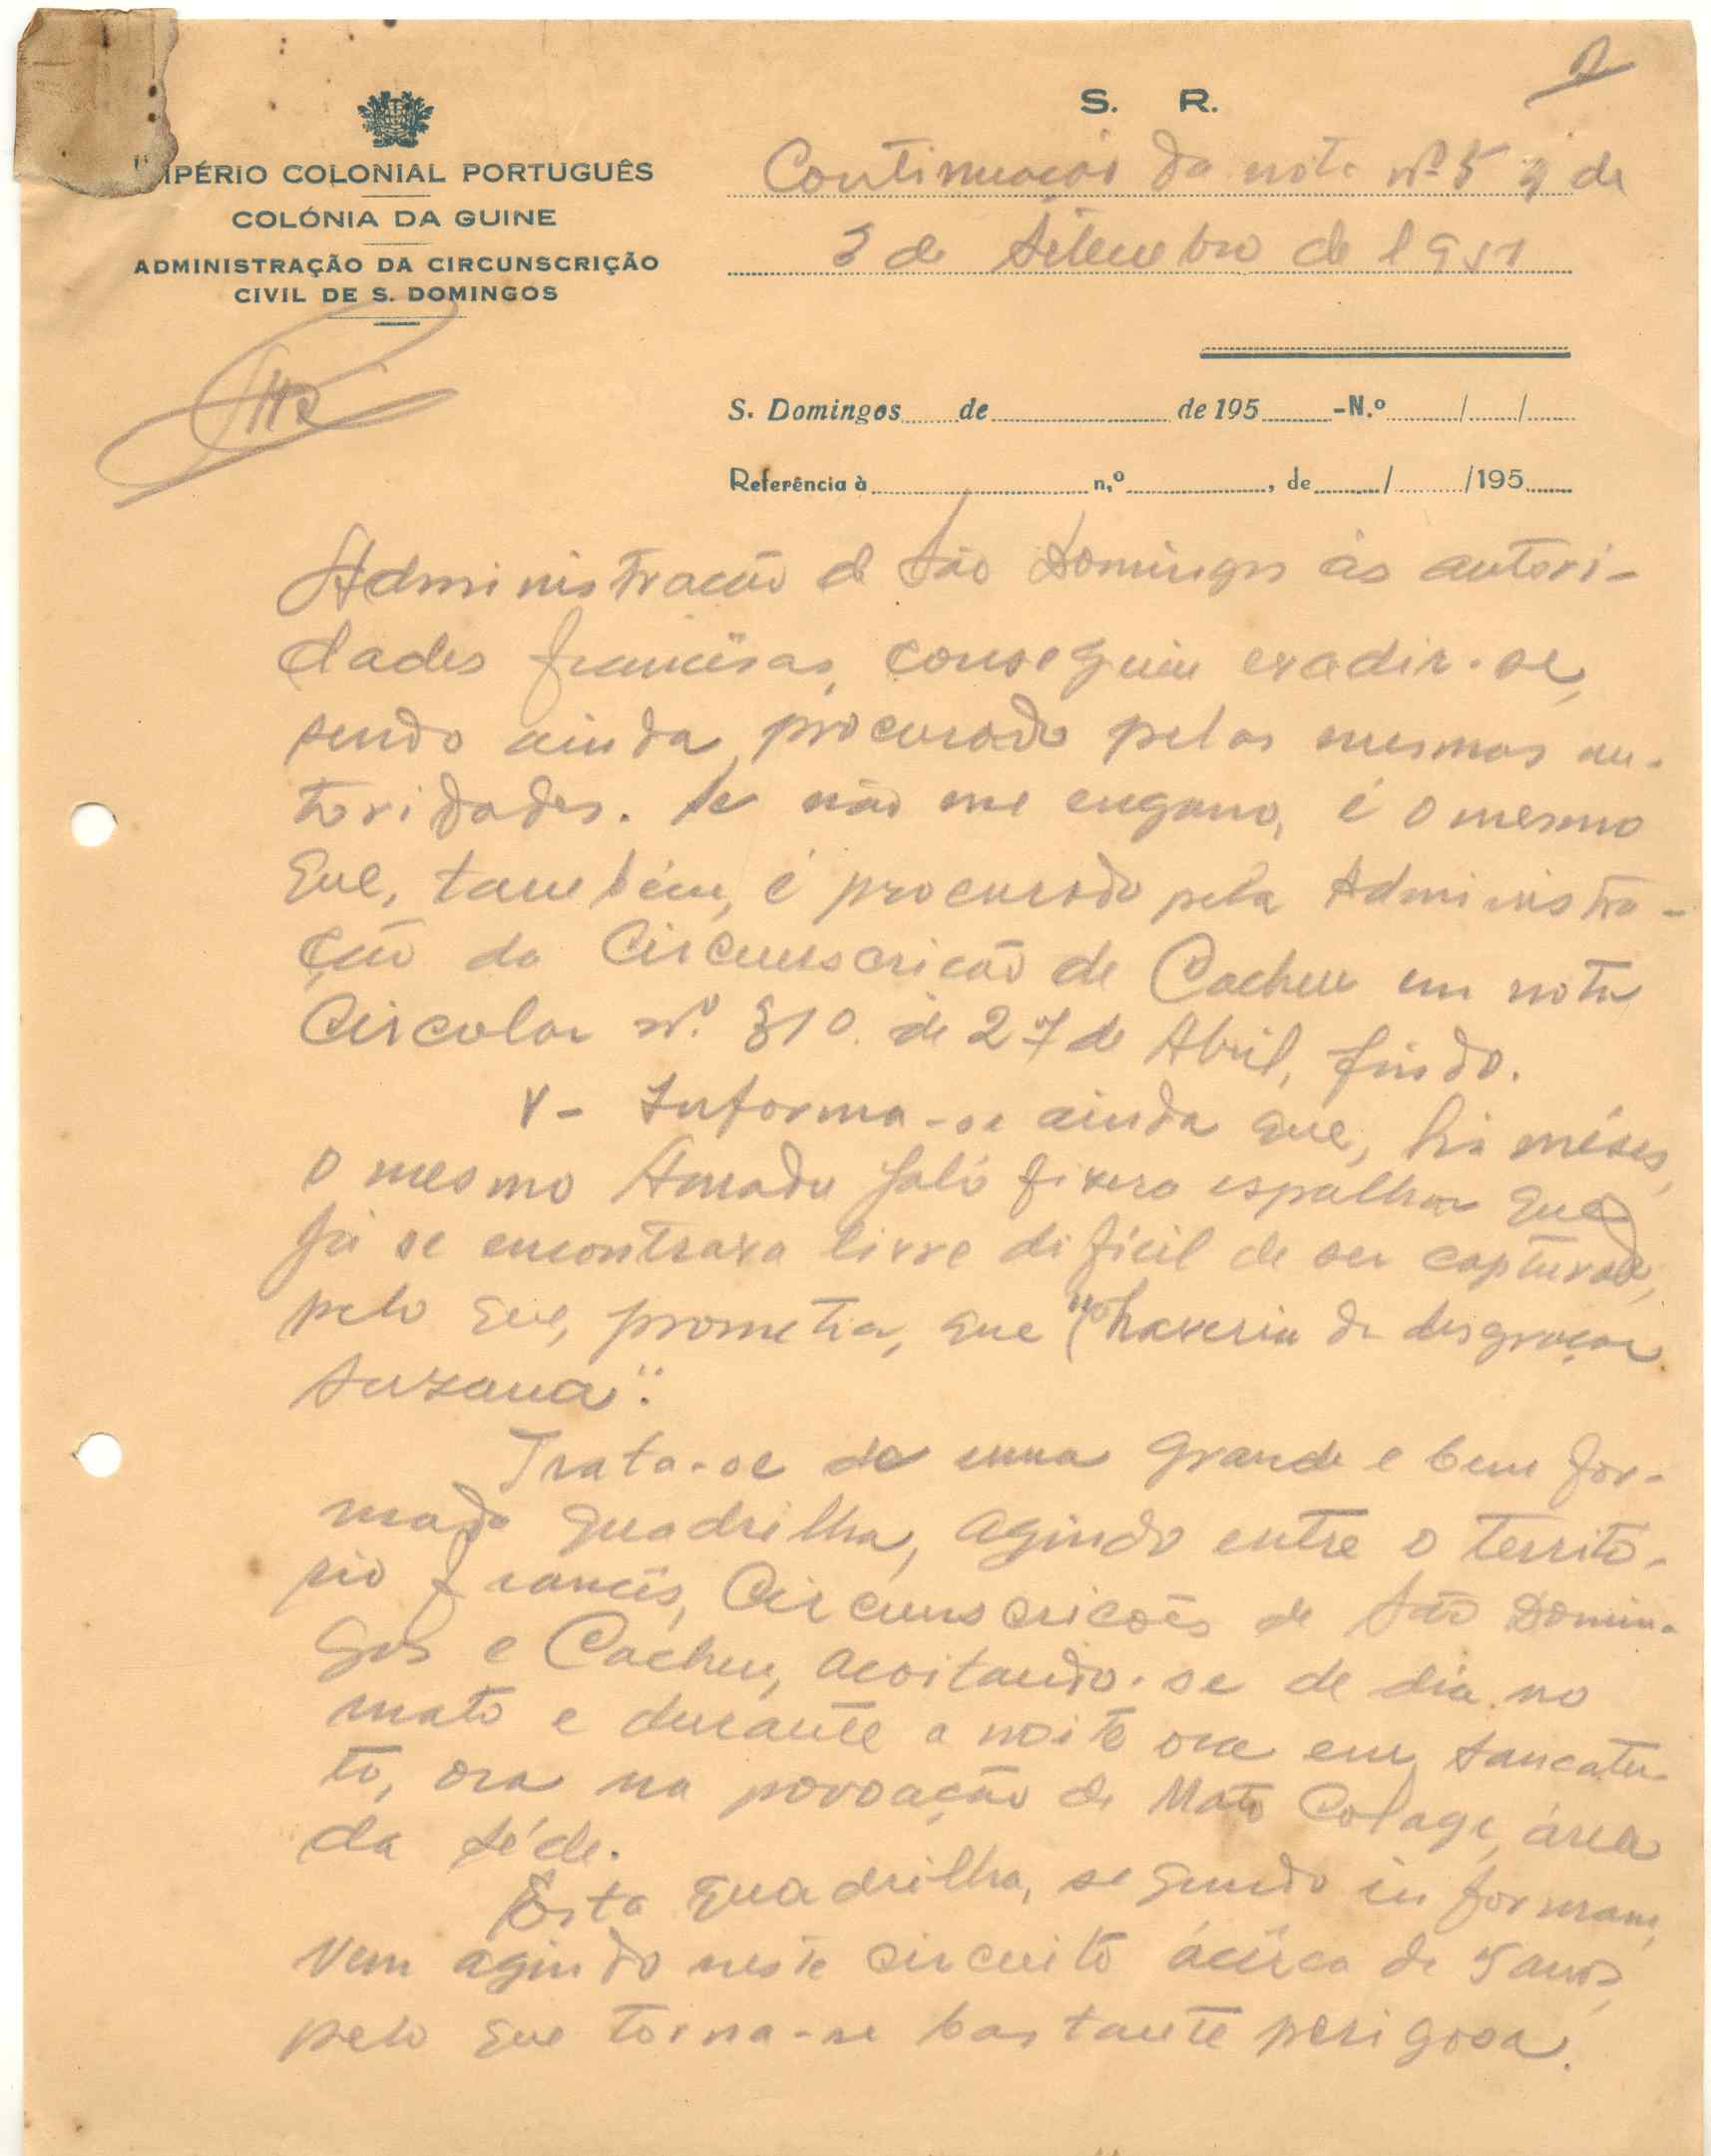 S. R.
IMPÉRIO COLONIAL PORTUGUÊS
COLÓNIA DA GUINE
ADMINISTRAÇÃO DA CIRCUNSCRIÇÃO
CIVIL DE S. DOMINGOS
Continuação da nota nº 5 de
3 de Setembro de 1951
S. Domingos de de 195 -N.º / /
Referência à n,º , de / /195
Administração de São Domingos ás autori-
dades francêsas, conseguiu evadir-se,
sendo ainda procurado pelas mesmas au-
toridades. Se não me engano, é o mesmo
que, também, é procurado pela Administra-
ção da Circunscrição de Cacheu em nota
Circular nº. 310. de 27 de Abril, findo.
V- Informa-se ainda que, há mêses,
o mesmo Amadu Jaló fizera espalhar que
já se encontrava livre dificil de ser capturado,
pelo que, prometia, que "haveria de desgraçar
Suzana".
Trata-se de uma grande e bem for-
mada quadrilha, agindo entre o territó-
rio francês, Circunscricões de São Domin-
gos e Cacheu, acoitando-se de dia no
mato e durante a noite ora em Sancatu-
to, ora na povoação de Mato Colage, área
da séde.
Esta quadrilha, segundo informam,
vem agindo neste circuito ácêrca de 5 anos,
pelo que torna-se bastante perigosa.